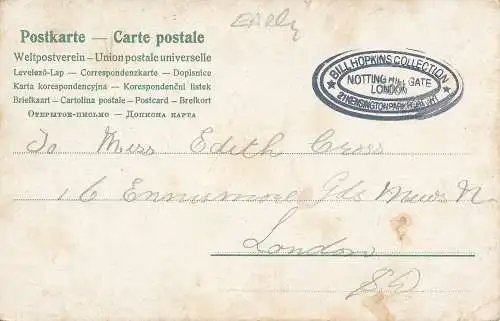 EARLY
Postkarte — Carte postale
Weltpostverein – Union postale universelle
Levelező-Lap — Correspondenzkarte — Dopisnice
Karta korespondencyjna — Korespondenční listek
Briefkaart – Cartolina postale – Postcard – Brefkort
Открытое-письмо — Дописна карта
★ BILL HOPKINS COLLECTION ★
NOTTING HILL GATE
LONDON
KENSINGTON PARK
To Miss Edith Cross
16 Ennismore Gds Mews N.
London